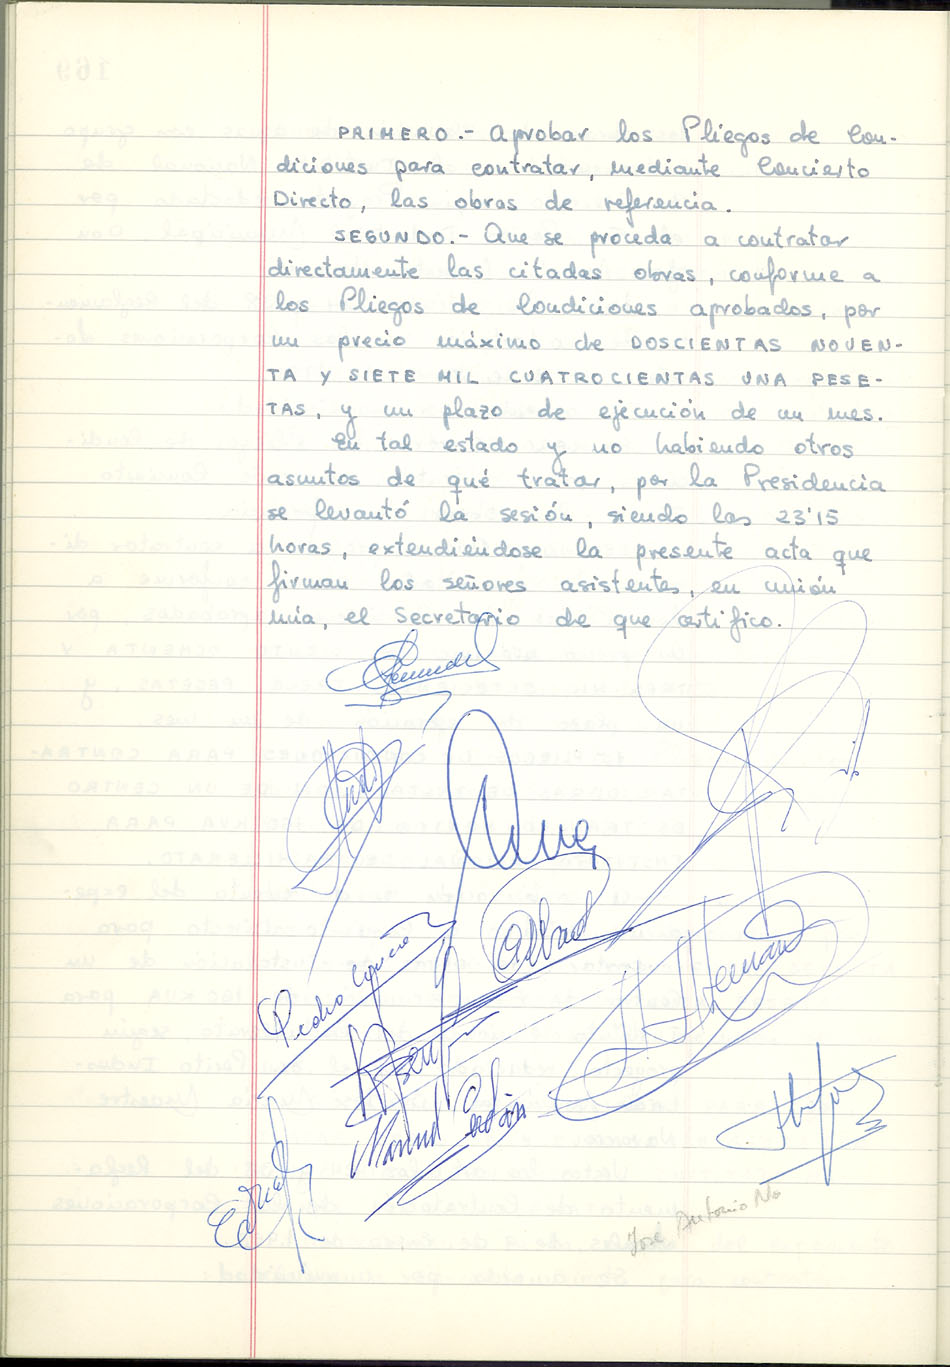 PRIMERO.- Aprobar los Pliegos de Con-
diciones para contratar, mediante Concierto
Directo, las obras de referencia.
SEGUNDO.- Que se proceda a contratar
directamente las citadas obras, conforme a
los Pliegos de Condiciones aprobados, por
un precio máximo de DOSCIENTAS NOVEN-
TA Y SIETE MIL CUATROCIENTAS UNA PESE-
TAS, y un plazo de ejecución de un mes.
En tal estado y no habiendo otros
asuntos de qué tratar, por la Presidencia
se levantó la sesión, siendo las 23'15
horas, extendiéndose la presente acta que
firman los señores asistentes, en unión
mía, el Secretario de que certifico.
Pedro
Manuel
José Antonio No